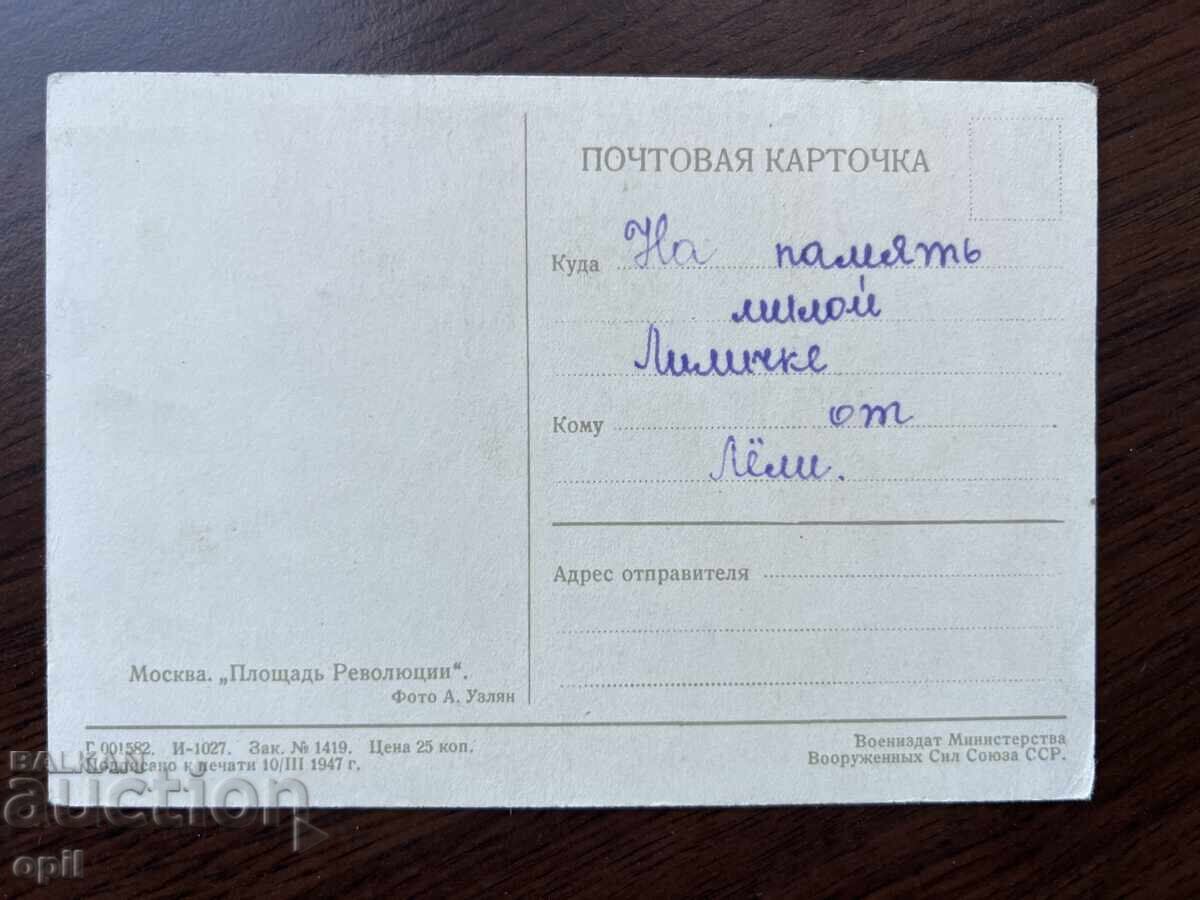 ПОЧТОВАЯ КАРТОЧКА
Куда На память
милой
Лиличке
Кому от
Лёли.
Адрес отправителя
Москва. „Площадь Революции“.
Фото А. Узлян
Г 001582. И-1027. Зак. № 1419. Цена 25 коп.
Подписано к печати 10/III 1947 г.
Воениздат Министерства
Вооруженных Сил Союза ССР.
BALKAN
auction
opil